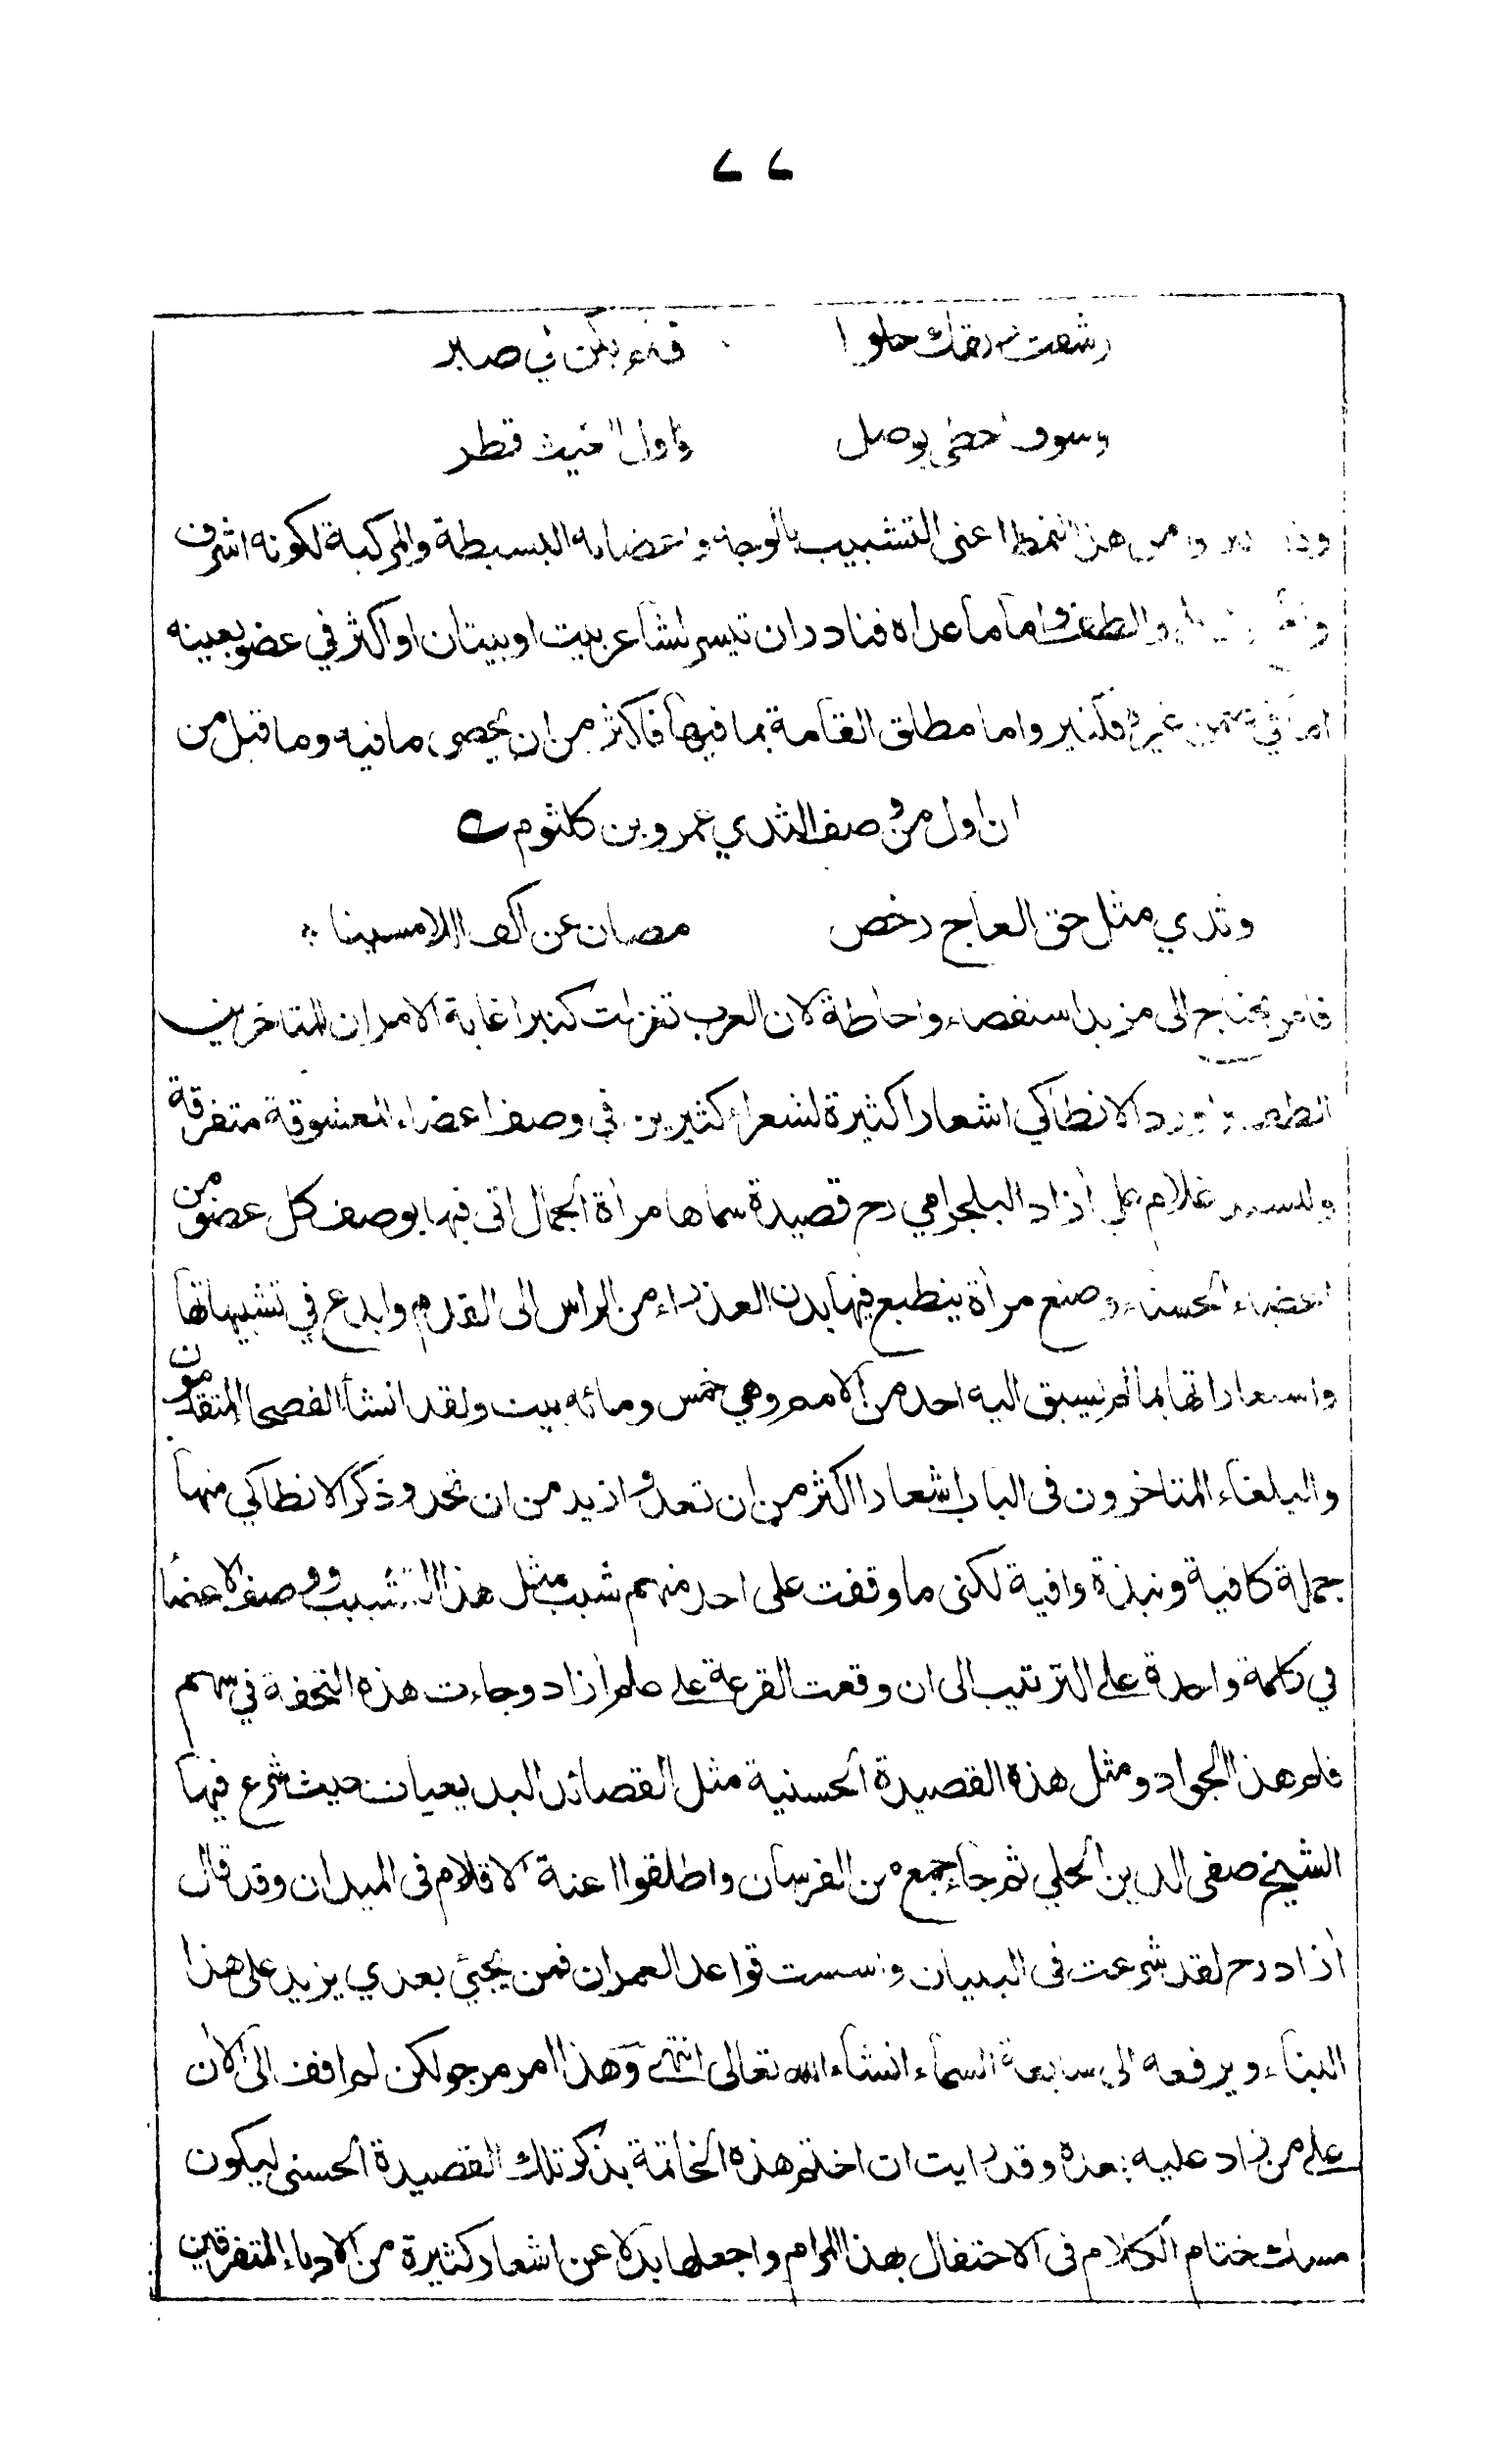 ٧٧
رشفت من ريقك حلوا فلم يكن لي صبر
وسوف احظى بوصل واول الغيث قطر
هذا النمط اعنى التشبيب بالوجه واعضائه البسيطة والمركبة لكونه اشرف
والطف واما ما عداه فنادر ان تيسر لشاعر بيت او بيتان او اكثر في عضو بعينه
غيره فكثير واما مطلق القامة بما فيها فاكثر من ان يحصى ما فيه وما قيل من
ان اول من وصف الثدي عمرو بن كلثوم
وثدي مثل حق العاج رخص مصان عن اكف اللامسينا
فامر يحتاج الى مزيد استقصاء واحاطة لان العرب تغزلت كثيرا غاية الامر ان للمتاخرين
الانطاكي اشعارا كثيرة لشعراء كثيرين في وصف اعضاء المعشوقة متفرقة
وللسيد غلام علي أزاد البلجرامي رح قصيدة سماها مرأة الجمال اتى فيها بوصف كل عضو من
اعضاء الحسناء وصنع مرأة ينطبع فيها بدن العذراء من الراس الى القدم وابدع في تشبيهاتها
واستعاراتها بما لم يسبق اليه احد من الامم وهي خمس ومائه بيت ولقد انشأ الفصحا المتقدمون
والبلغاء المتاخرون فى الباب اشعارا اكثر من ان تعد وازيد من ان تحد وذكر الانطاكي منها
جملة كافية ونبذة وافية لكنى ما وقفت على احد منهم شبب مثل هذا التشبيب ووصف الاعضا
في كلمة واحدة على الترتيب الى ان وقعت القرعة على أزاد وجاءت هذه التحفة في سهم
هذا الجواد ومثل هذه القصيدة الحسنية مثل القصائد البديعيات حيث شرع فيها
الشيخ صفى الدين الحلي ثم جاء جمع من الفرسان واطلقوا اعنة الاقلام فى الميدان وقد قال
أزاد رح لقد شرعت فى البنيان واسست قواعد العمران فمن يجئي بعدي يزيد على هذا
البناء ويرفعه الى سابعة السماء انشاء الله تعالى انتهى وهذا امر مرجو لكن لم اقف الى الأن
على من زاد عليه بعده وقد رايت ان اختم هذه الخاتمة بذكر تلك القصيدة الحسنى ليكون
مسك ختام الكلام فى الاحتفال بهذا المرام واجعلها بدلا عن اشعار كثيرة من الادباء المتفرقين